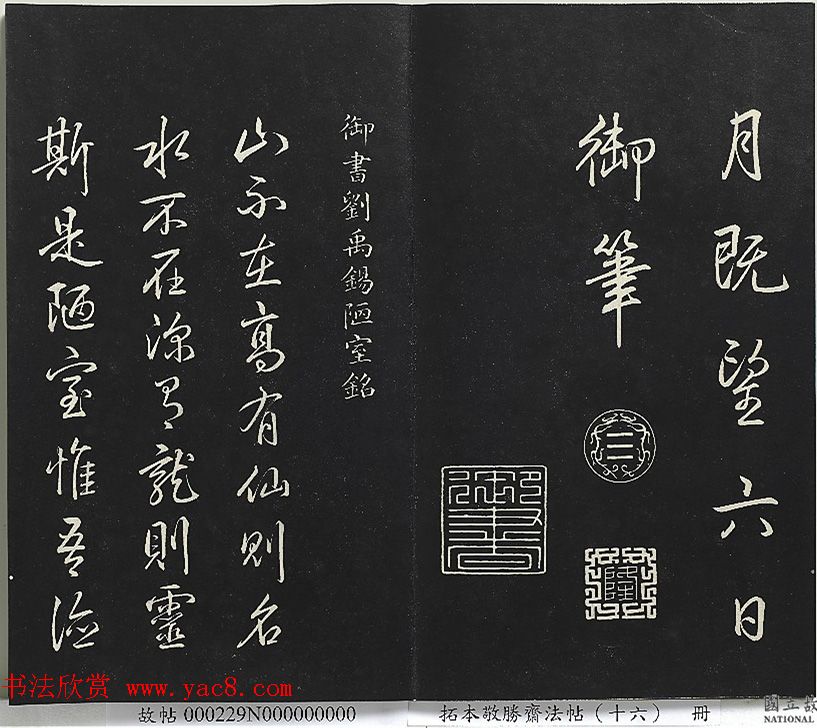 月既望六日
御筆
隆
御書
御書劉禹錫陋室銘
山不在高有仙則名
水不在深有龍則靈
斯是陋室惟吾德
书法欣赏 www.yac8.com
故帖 000229N000000000
拓本敬勝齋法帖（十六） 冊
國立故
NATIONAL